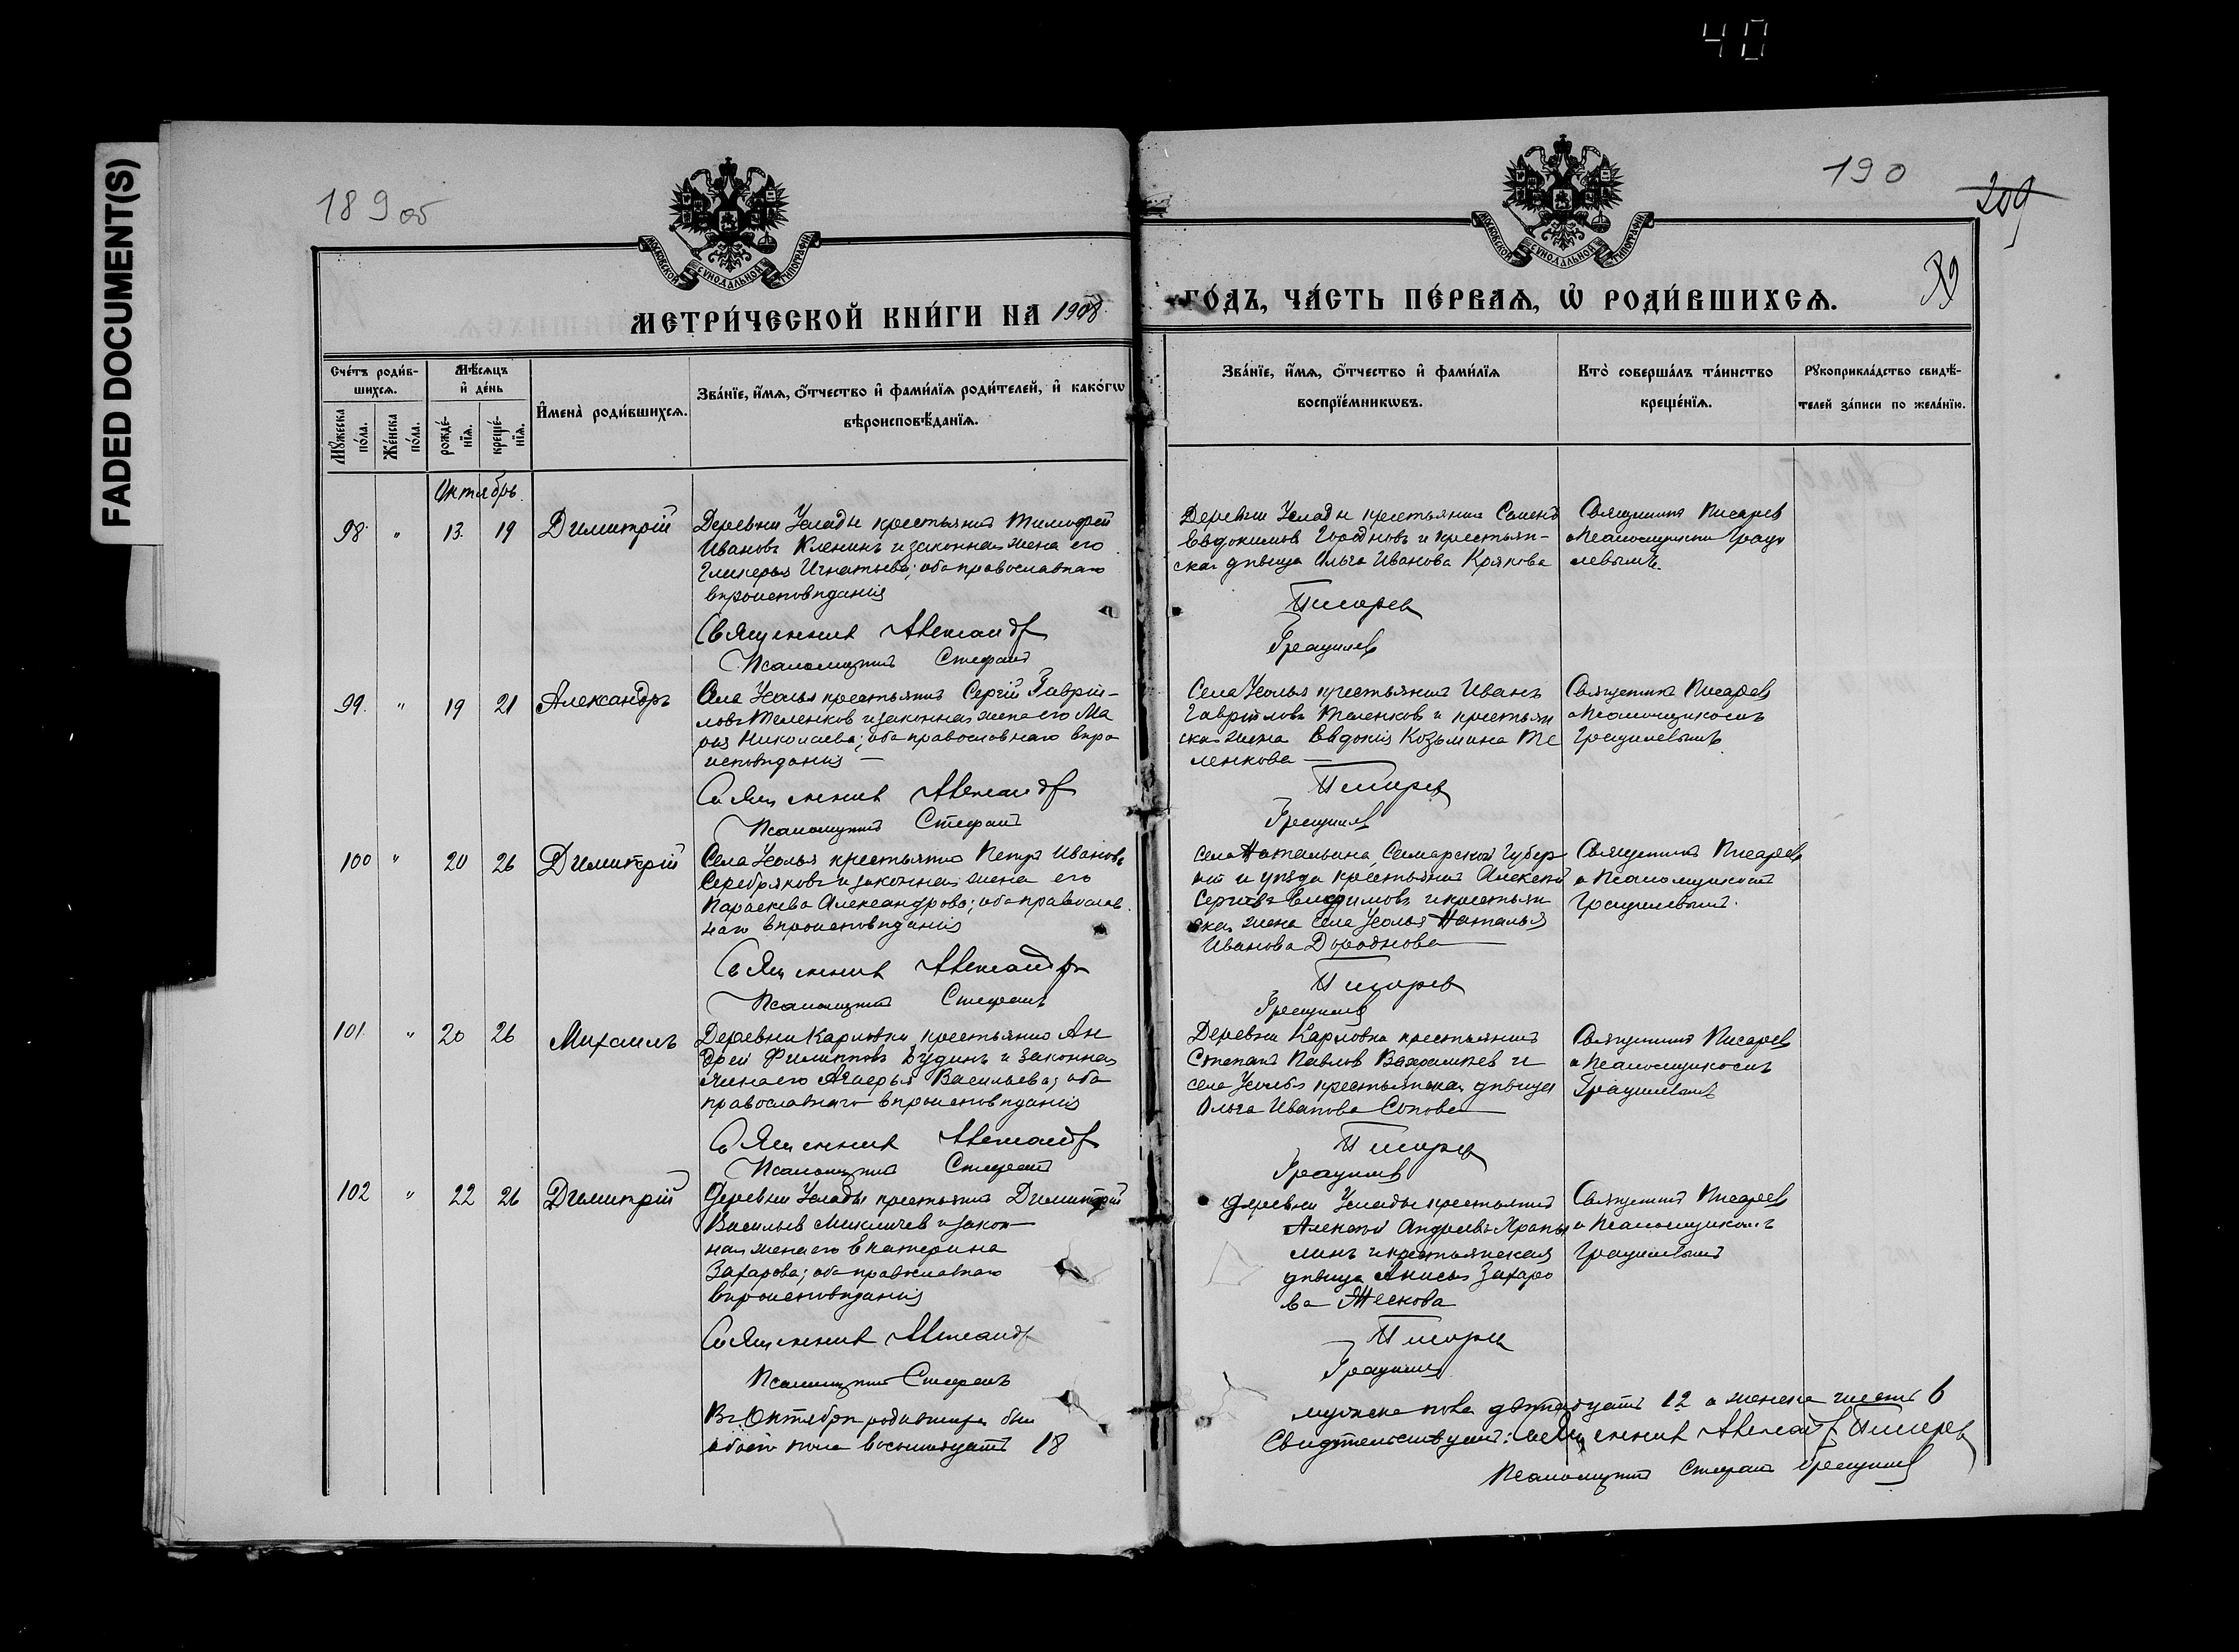 40
FADED DOCUMENT(S)
189 об
190
209
99
МОСКОВСКОЙ СѴНОДАЛЬНОЙ ТИПОГРАФІИ
МОСКОВСКОЙ СѴНОДАЛЬНОЙ ТИПОГРАФІИ
МЕТРИ́ЧЕСКОЙ КНИ́ГИ НА 1908
ГО́ДЪ, ЧА́СТЬ ПЕ́РВАѦ, Ѡ҆ РОДИ́ВШИХСѦ.
Сче́тъ роди́в-
шихсѧ.
Мꙋ́жеска по́ла.
Же́нска по́ла.
Мѣ́сѧцъ
и҆ де́нь
рожде́-
нїѧ.
креще́-
нїѧ.
И҆мена̀ роди́вшихсѧ.
Зва́нїе, и҆́мѧ, ѻ҆́тчество и҆ фами́лїѧ роди́телей, и҆ како́гѡ
вѣроисповѣ́данїѧ.
Зва́нїе, и҆́мѧ, ѻ҆́тчество и҆ фами́лїѧ
воспрїе́мникѡвъ.
Кто̀ соверша́лъ та́инство
креще́нїѧ.
Рꙋкоприкла́дство свидѣ́-
телей за́писи по жела́нїю.
Октябрь
98 " 13 19 Димитрій
Деревни Услады крестьянинъ Тимофей
Ивановъ Кленинъ и законная жена его
Гликерья Игнатьева; оба православнаго
вѣроисповѣданія
Священникъ Александр
Псаломщикъ Стефанъ
Деревни Услады крестьянинъ Семенъ
Евдокимовъ и крестьян-
ская дѣвица Ольга Иванова Крякова
Писарев
Священникъ Писарев
и Псаломщикомъ
левымъ.
99 " 19 21 Александръ
Села Усолья крестьянинъ Сергій Гаврии-
ловъ Теленков и законная жена его Ма
рія Николаева; оба православнаго вѣро
исповѣданія —
Священникъ Александр
Псаломщикъ Стефанъ
Села Усолья крестьянинъ Иванъ
Гавриловъ Теленков и крестьян
ская жена Евдокія Козьмина Те
ленкова —
Писарев
Священникъ Писарев
и Псаломщикомъ
100 " 20 26 Димитрій
Села Усолья крестьянинъ Петръ Ивановъ
Серебряковъ и законная жена его
Параскева Александрова; оба православ
наго вѣроисповѣданія
Священникъ Александр
Псаломщикъ Стефанъ
Села Натальина Самарской Губер
ніи и уѣзда крестьянинъ Алексей
Сергѣевъ и крестьян
ская жена села Усолья Наталья
Иванова Дороднова
Писарев
Священникъ Писарев
и Псаломщикомъ
101 " 20 26 Михаилъ
Деревни Карловки крестьянинъ Ан
дрей Филипповъ Будинъ и законная
жена его Васильева; оба
православнаго вѣроисповѣданія
Священникъ Александр
Псаломщикъ Стефанъ
Деревни Карловки крестьянинъ
Степанъ Павлов и
села Усолья крестьянская дѣвица
Ольга Иванова Сонова
Писарев
Священникъ Писарев
и Псаломщикомъ
102 " 22 26 Димитрій
Деревни Услады крестьянинъ Димитрій
Васильев и закон
ная жена его Екатерина
Захарова; оба православнаго
вѣроисповѣданія
Священникъ Александр
Псаломщикъ Стефанъ
деревни Услады крестьянинъ
Алексей Андреевъ
линъ и крестьянская
дѣвица Анисья Захаро
ва
Писарев
Священникъ Писарев
и Псаломщикомъ
Въ Октябрѣ родившихся было
обоего пола восемнадцать 18
мужска пола двѣнадцать 12 а женска шесть 6
Свидѣтельствуютъ: Священникъ Александр Писарев
Псаломщикъ Стефанъ